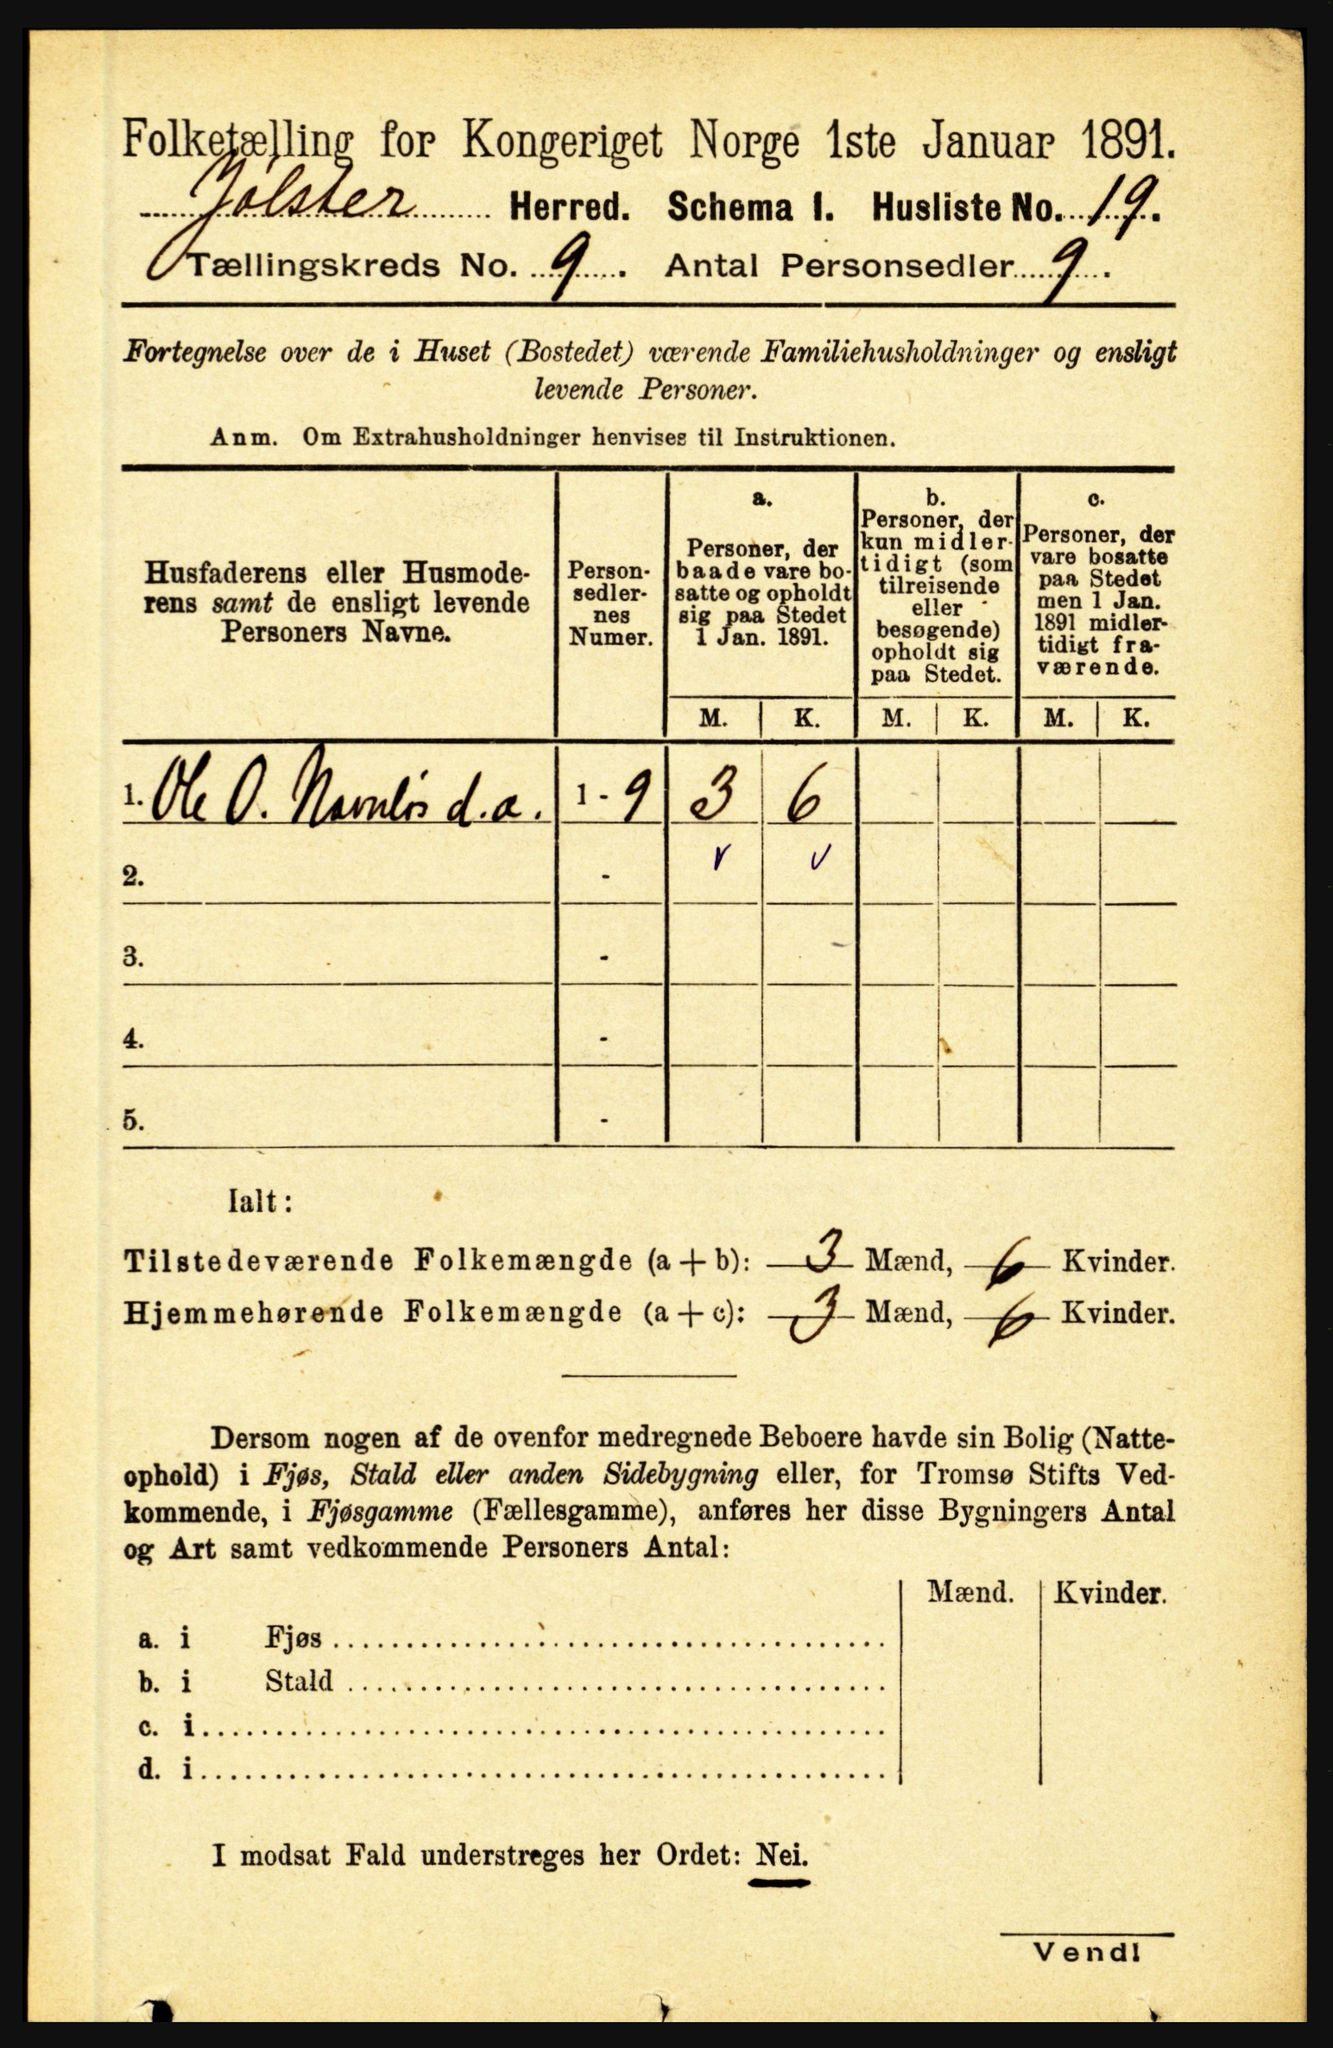 Folketælling for Kongeriget Norge 1ste Januar 1891.
Jølster Herred. Schema 1. Husliste No. 19.
Tællingskreds No. 9. Antal Personsedler 9.
Fortegnelse over de i Huset (Bostedet) værende Familiehusholdninger og ensligt
levende Personer.
Anm. Om Extrahusholdninger henvises til Instruktionen.
Husfaderens eller Husmode-
rens samt de ensligt levende
Personers Navne.
Person-
sedler-
nes
Numer.
a.
Personer, der
baade vare bo-
satte og opholdt
sig paa Stedet
1 Jan. 1891.
b.
Personer, der
kun midler-
tidigt (som
tilreisende
eller
besøgende)
opholdt sig
paa Stedet.
c.
Personer, der
vare bosatte
paa Stedet
men 1 Jan.
1891 midler-
tidigt fra-
værende.
M. K. M. K. M. K.
1. Ole O. Navnløs d.a. 1 - 9 3 6
2. -
3. -
4. -
5. -
Ialt:
Tilstedeværende Folkemængde (a + b): 3 Mænd, 6 Kvinder.
Hjemmehørende Folkemængde (a + c): 3 Mænd, 6 Kvinder.
Dersom nogen af de ovenfor medregnede Beboere havde sin Bolig (Natte-
ophold) i Fjøs, Stald eller anden Sidebygning eller, for Tromsø Stifts Ved-
kommende, i Fjøsgamme (Fællesgamme), anføres her disse Bygningers Antal
og Art samt vedkommende Personers Antal:
Mænd. Kvinder.
a. i Fjøs
b. i Stald
c. i
d. i
I modsat Fald understreges her Ordet: Nei.
Vend!